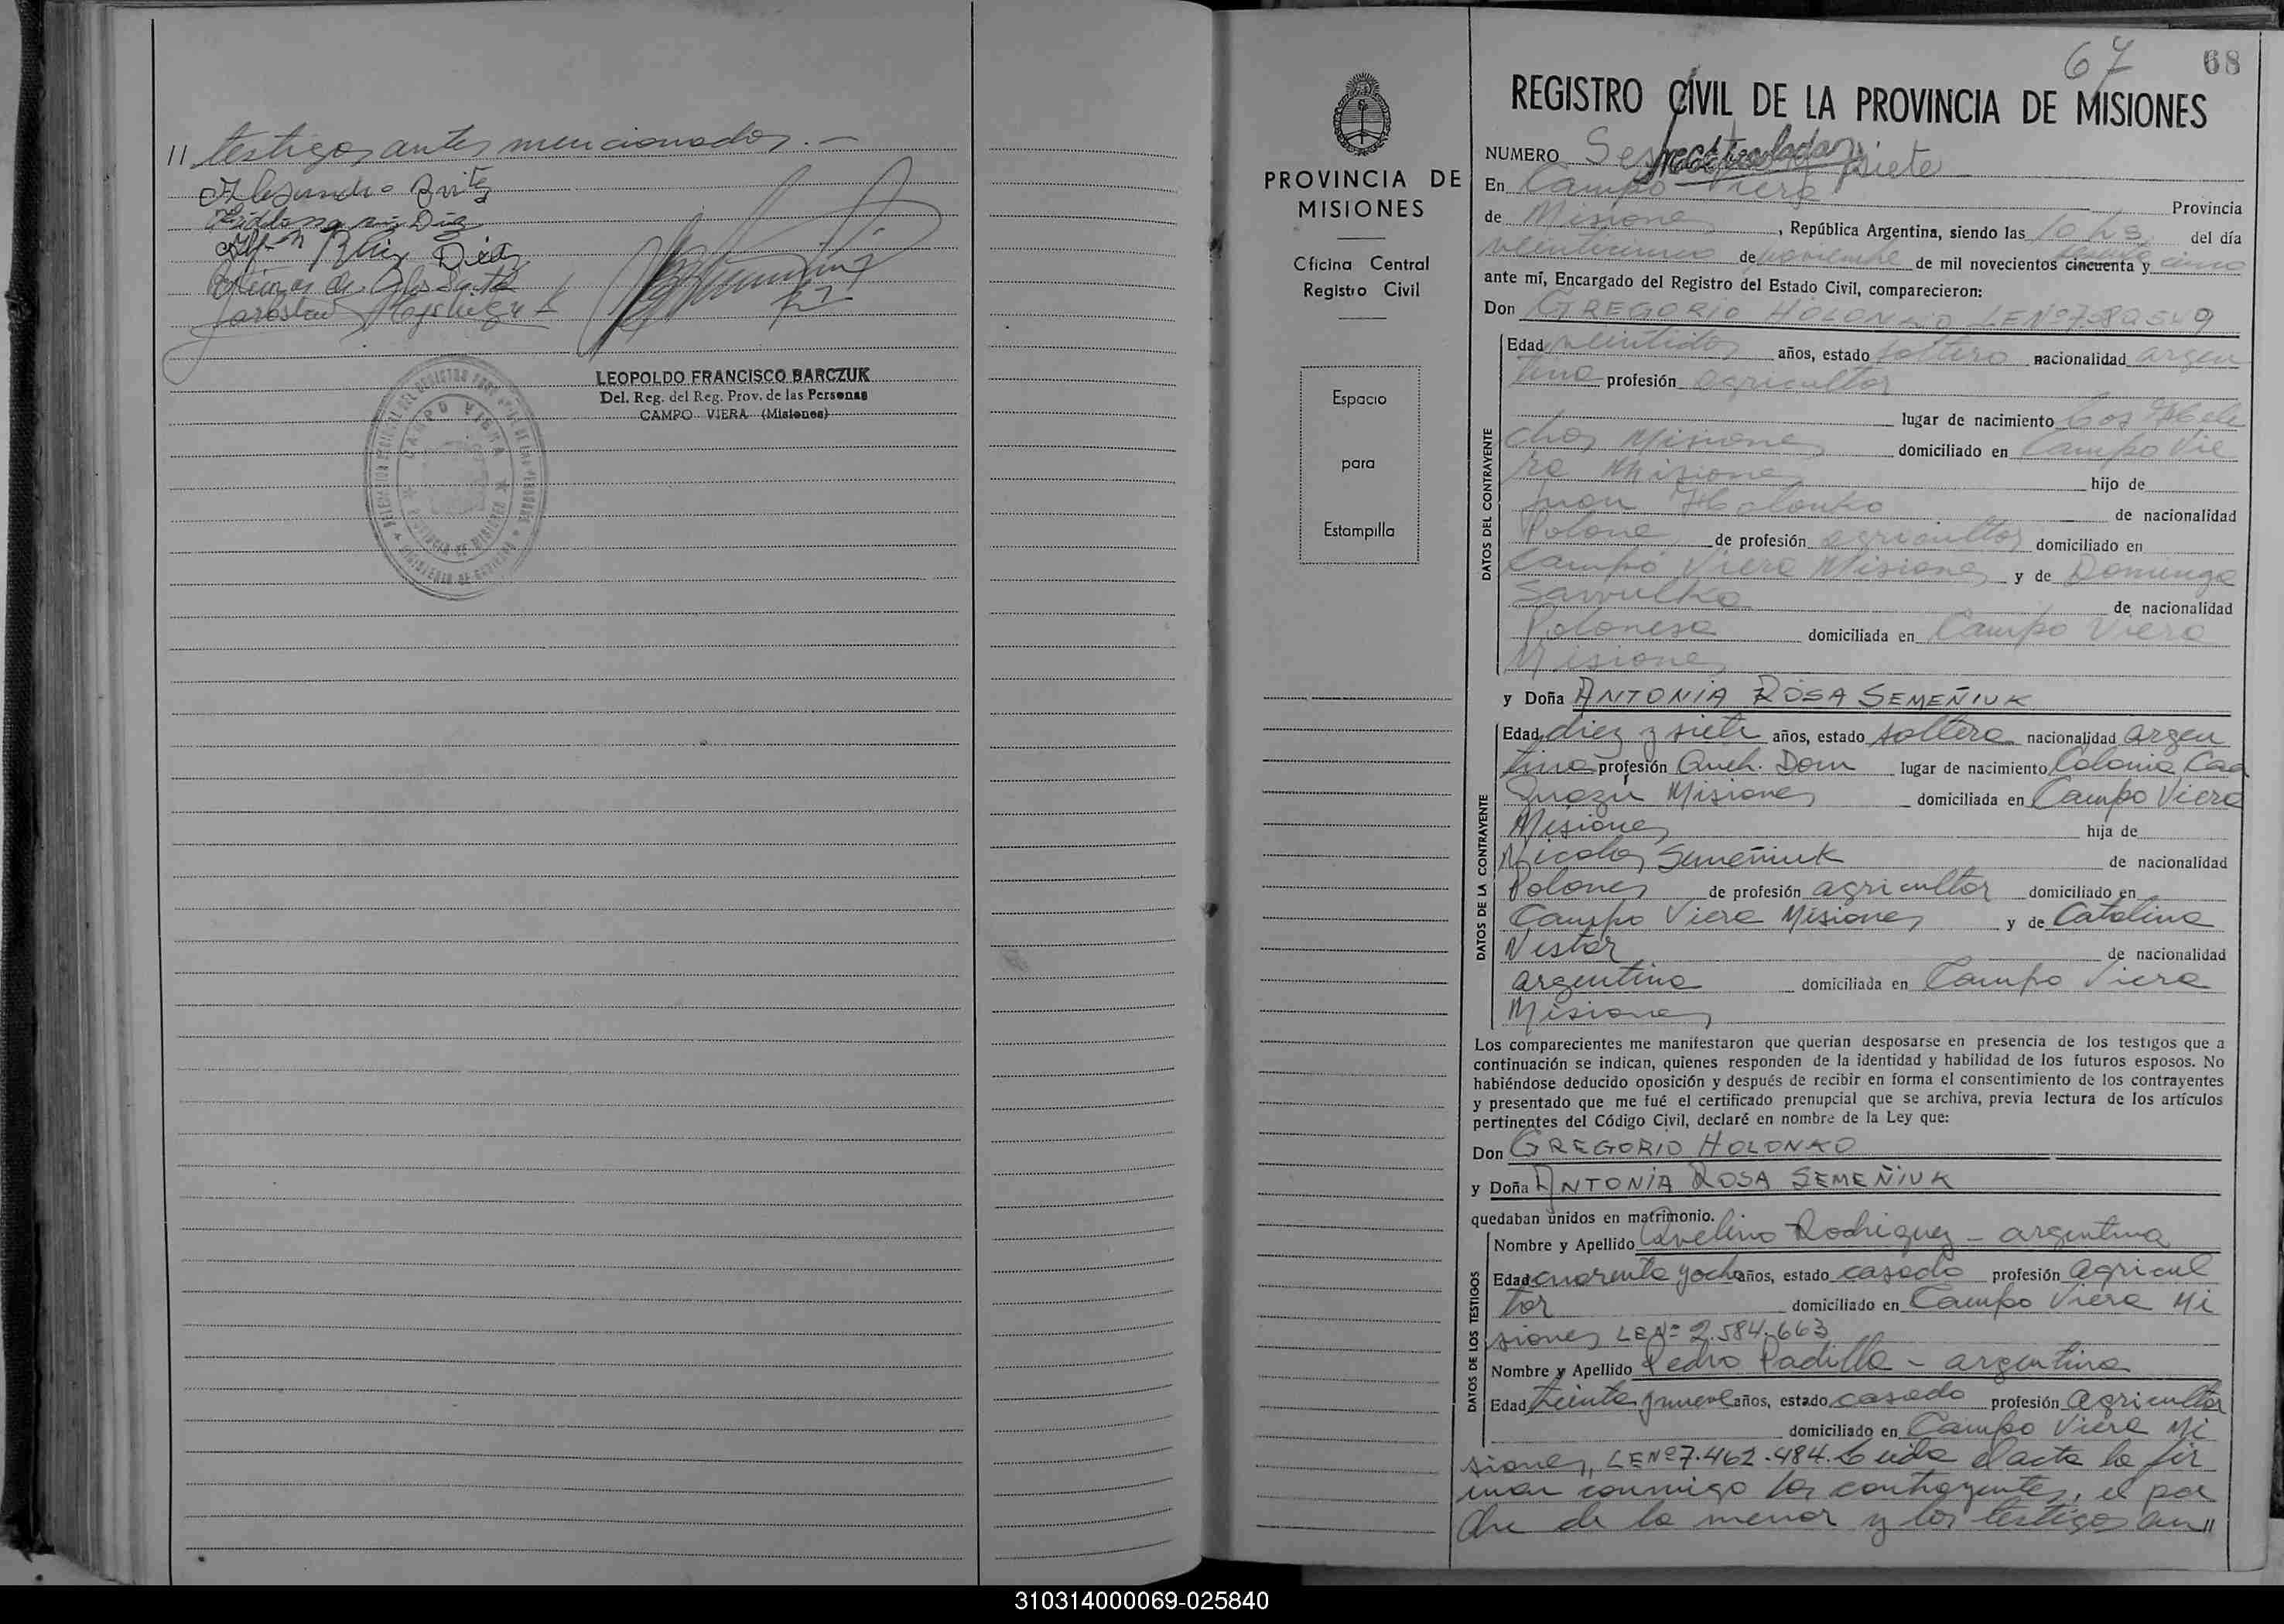 // testigos antes mencionados. -
Alejandro Britez
Ruiz Diaz
LEOPOLDO FRANCISCO BARCZUK
Del. Reg. del Reg. Prov. de las Personas
CAMPO VIERA (Misiones)
CAMPO VIERA
PROVINCIA DE
MISIONES
Oficina Central
Registro Civil
Espacio
para
Estampilla
67 68
REGISTRO CIVIL DE LA PROVINCIA DE MISIONES
NUMERO siete
En Campo Viera Provincia
de Misiones, República Argentina, siendo las 10 hs. del día
veinticinco de noviembre de mil novecientos cincuenta y cinco
ante mí, Encargado del Registro del Estado Civil, comparecieron:
Don GREGORIO HOLONKO LE Nº
DATOS DEL CONTRAYENTE
Edad veintidos años, estado soltero nacionalidad argen
tina profesión agricultor
lugar de nacimiento Los Hele
chos Misiones domiciliado en Campo Vie
ra Misiones hijo de
Juan Holonko de nacionalidad
Polone de profesión agricultor domiciliado en
Campo Viera Misiones y de Dominga
Sawulko de nacionalidad
Polonesa domiciliada en Campo Viera
Misiones
y Doña ANTONIA ROSA SEMEÑIUK
DATOS DE LA CONTRAYENTE
Edad diez y siete años, estado soltera nacionalidad argen
tina profesión Queh. Dom lugar de nacimiento Colonia Caa
Guazú Misiones domiciliada en Campo Viera
Misiones hija de
Nicolas Semeñiuk de nacionalidad
Polones de profesión agricultor domiciliado en
Campo Viera Misiones y de Catalina
Nestor de nacionalidad
argentina domiciliada en Campo Viera
Misiones
Los comparecientes me manifestaron que querían desposarse en presencia de los testigos que a
continuación se indican, quienes responden de la identidad y habilidad de los futuros esposos. No
habiéndose deducido oposición y después de recibir en forma el consentimiento de los contrayentes
y presentado que me fué el certificado prenupcial que se archiva, previa lectura de los artículos
pertinentes del Código Civil, declaré en nombre de la Ley que:
Don GREGORIO HOLONKO
y Doña ANTONIA ROSA SEMEÑIUK
quedaban unidos en matrimonio.
DATOS DE LOS TESTIGOS
Nombre y Apellido Avelino Rodriguez - argentina
Edad cuarenta y ocho años, estado casado profesión agricul
tor domiciliado en Campo Viera Mi
siones LE Nº 2.584.663
Nombre y Apellido Pedro Padilla - argentina
Edad treinta y nueve años, estado casado profesión agricultor
domiciliado en Campo Viera Mi
siones, LE Nº 7.462.484. Leida el acta la fir
man conmigo los contrayentes, el pa
dre de la menor y los testigos an//
310314000069-025840